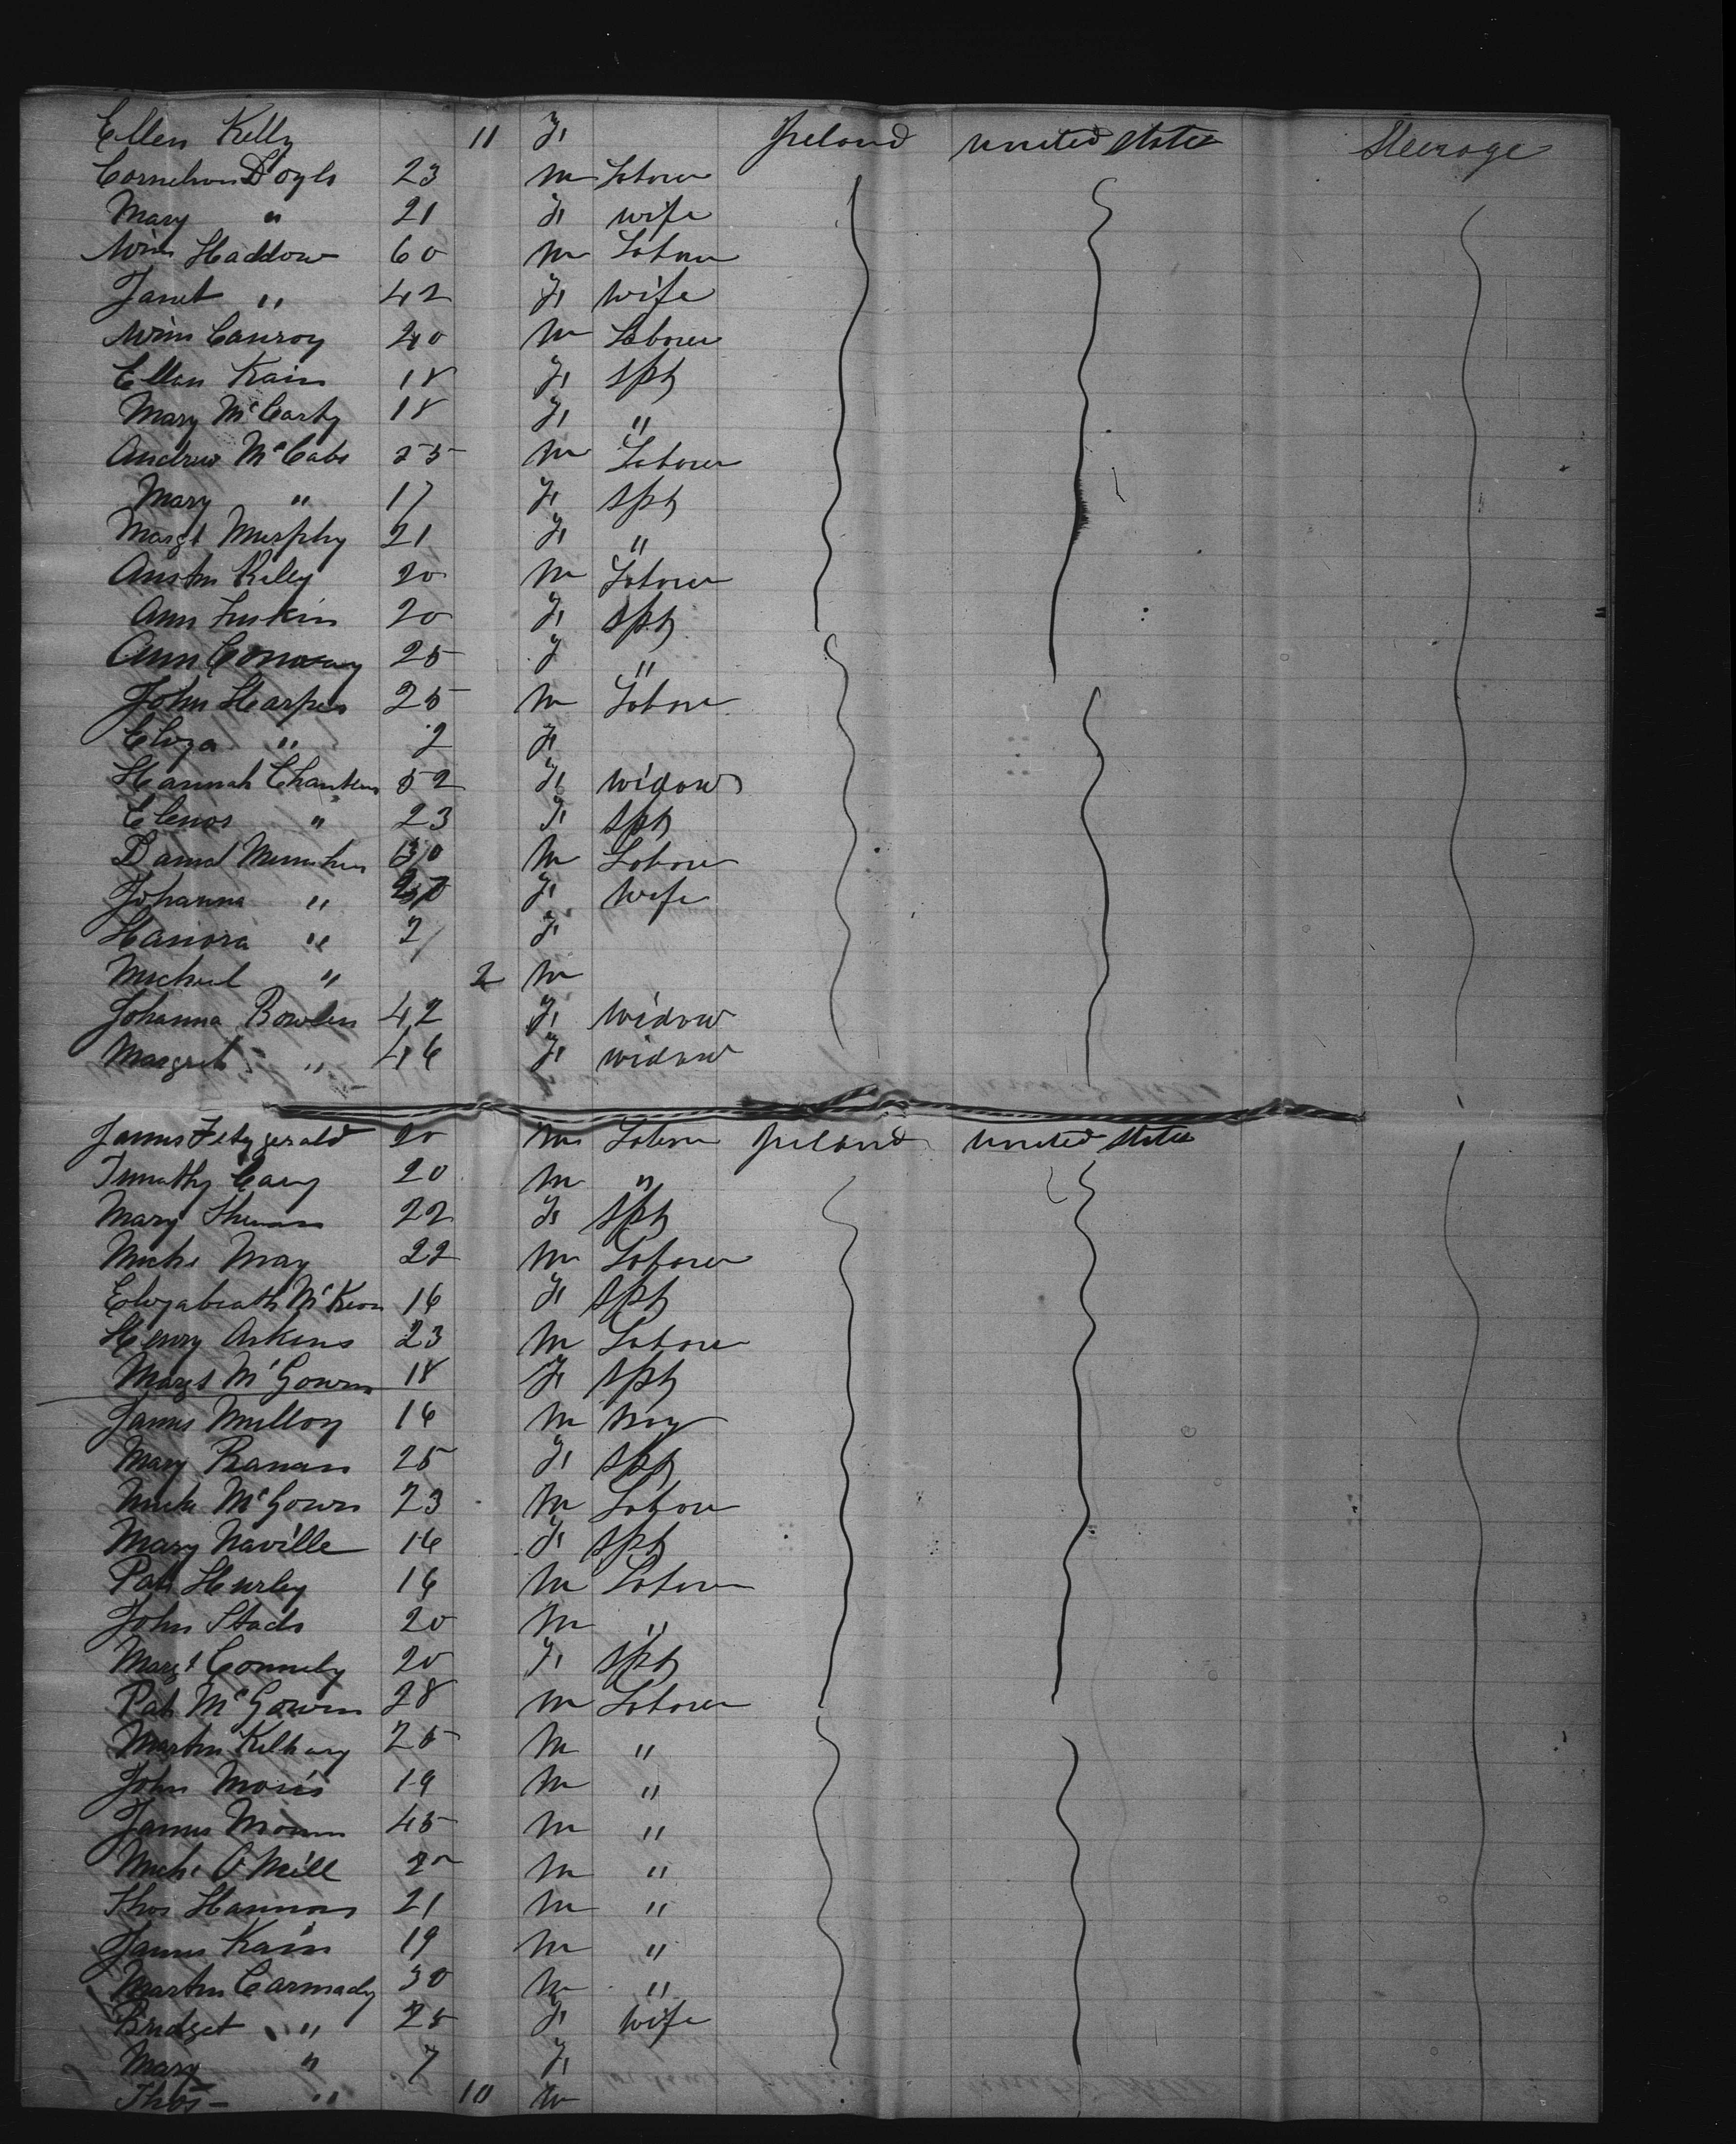 Ellen Kelly 11 F Ireland United States Steerage
Cornelius Doyle 23 M Laborer
Mary " 21 F Wife
Wm Haddow 60 M Laborer
Janet " 42 F Wife
Wm Conroy 40 M Laborer
Ellen Kain 18 F Spts
Mary McCarty 18 F "
Andrew McCabe 25 M Laborer
Mary " 17 F Spts
Margt Murphy 21 F "
Austin Kiley 20 M Laborer
Ann Luskin 20 F Spts
Ann Conway 25 F "
John Harper 25 M Laborer
Eliza " 2 F
Hannah 52 F Widow
Elenor " 23 F Spts
M Laborer
Johanna " F Wife
Hanora " 2 F
Micheal " 2 M
Johanna Bowlen 42 F Widow
Margret " 46 F Widow
James Fitzgerald 20 M Laborer Ireland United States
Timothy 20 M "
Mary 22 F Spts
Miche May 22 M Laborer
Elizabeath McKeon 16 F Spts
Henry Arkins 23 M Laborer
Margt McGowen 18 F Spts
James Mulloy 16 M Boy
Mary Ranan 25 F Spts
Miche McGowen 23 M Laborer
Mary Naville 16 F Spts
Pat Hurley 16 M Laborer
John Stads 20 M "
Margt Connely 20 F Spts
Pat McGowen 28 M Laborer
Martin 25 M "
John Moris 19 M "
James 45 M "
Miche O Neill M "
Thos Hannon 21 M "
James Kain 19 M "
Martin Carmady 30 M "
Bridget " 25 F Wife
Mary " 7 F
Thos " 10 M